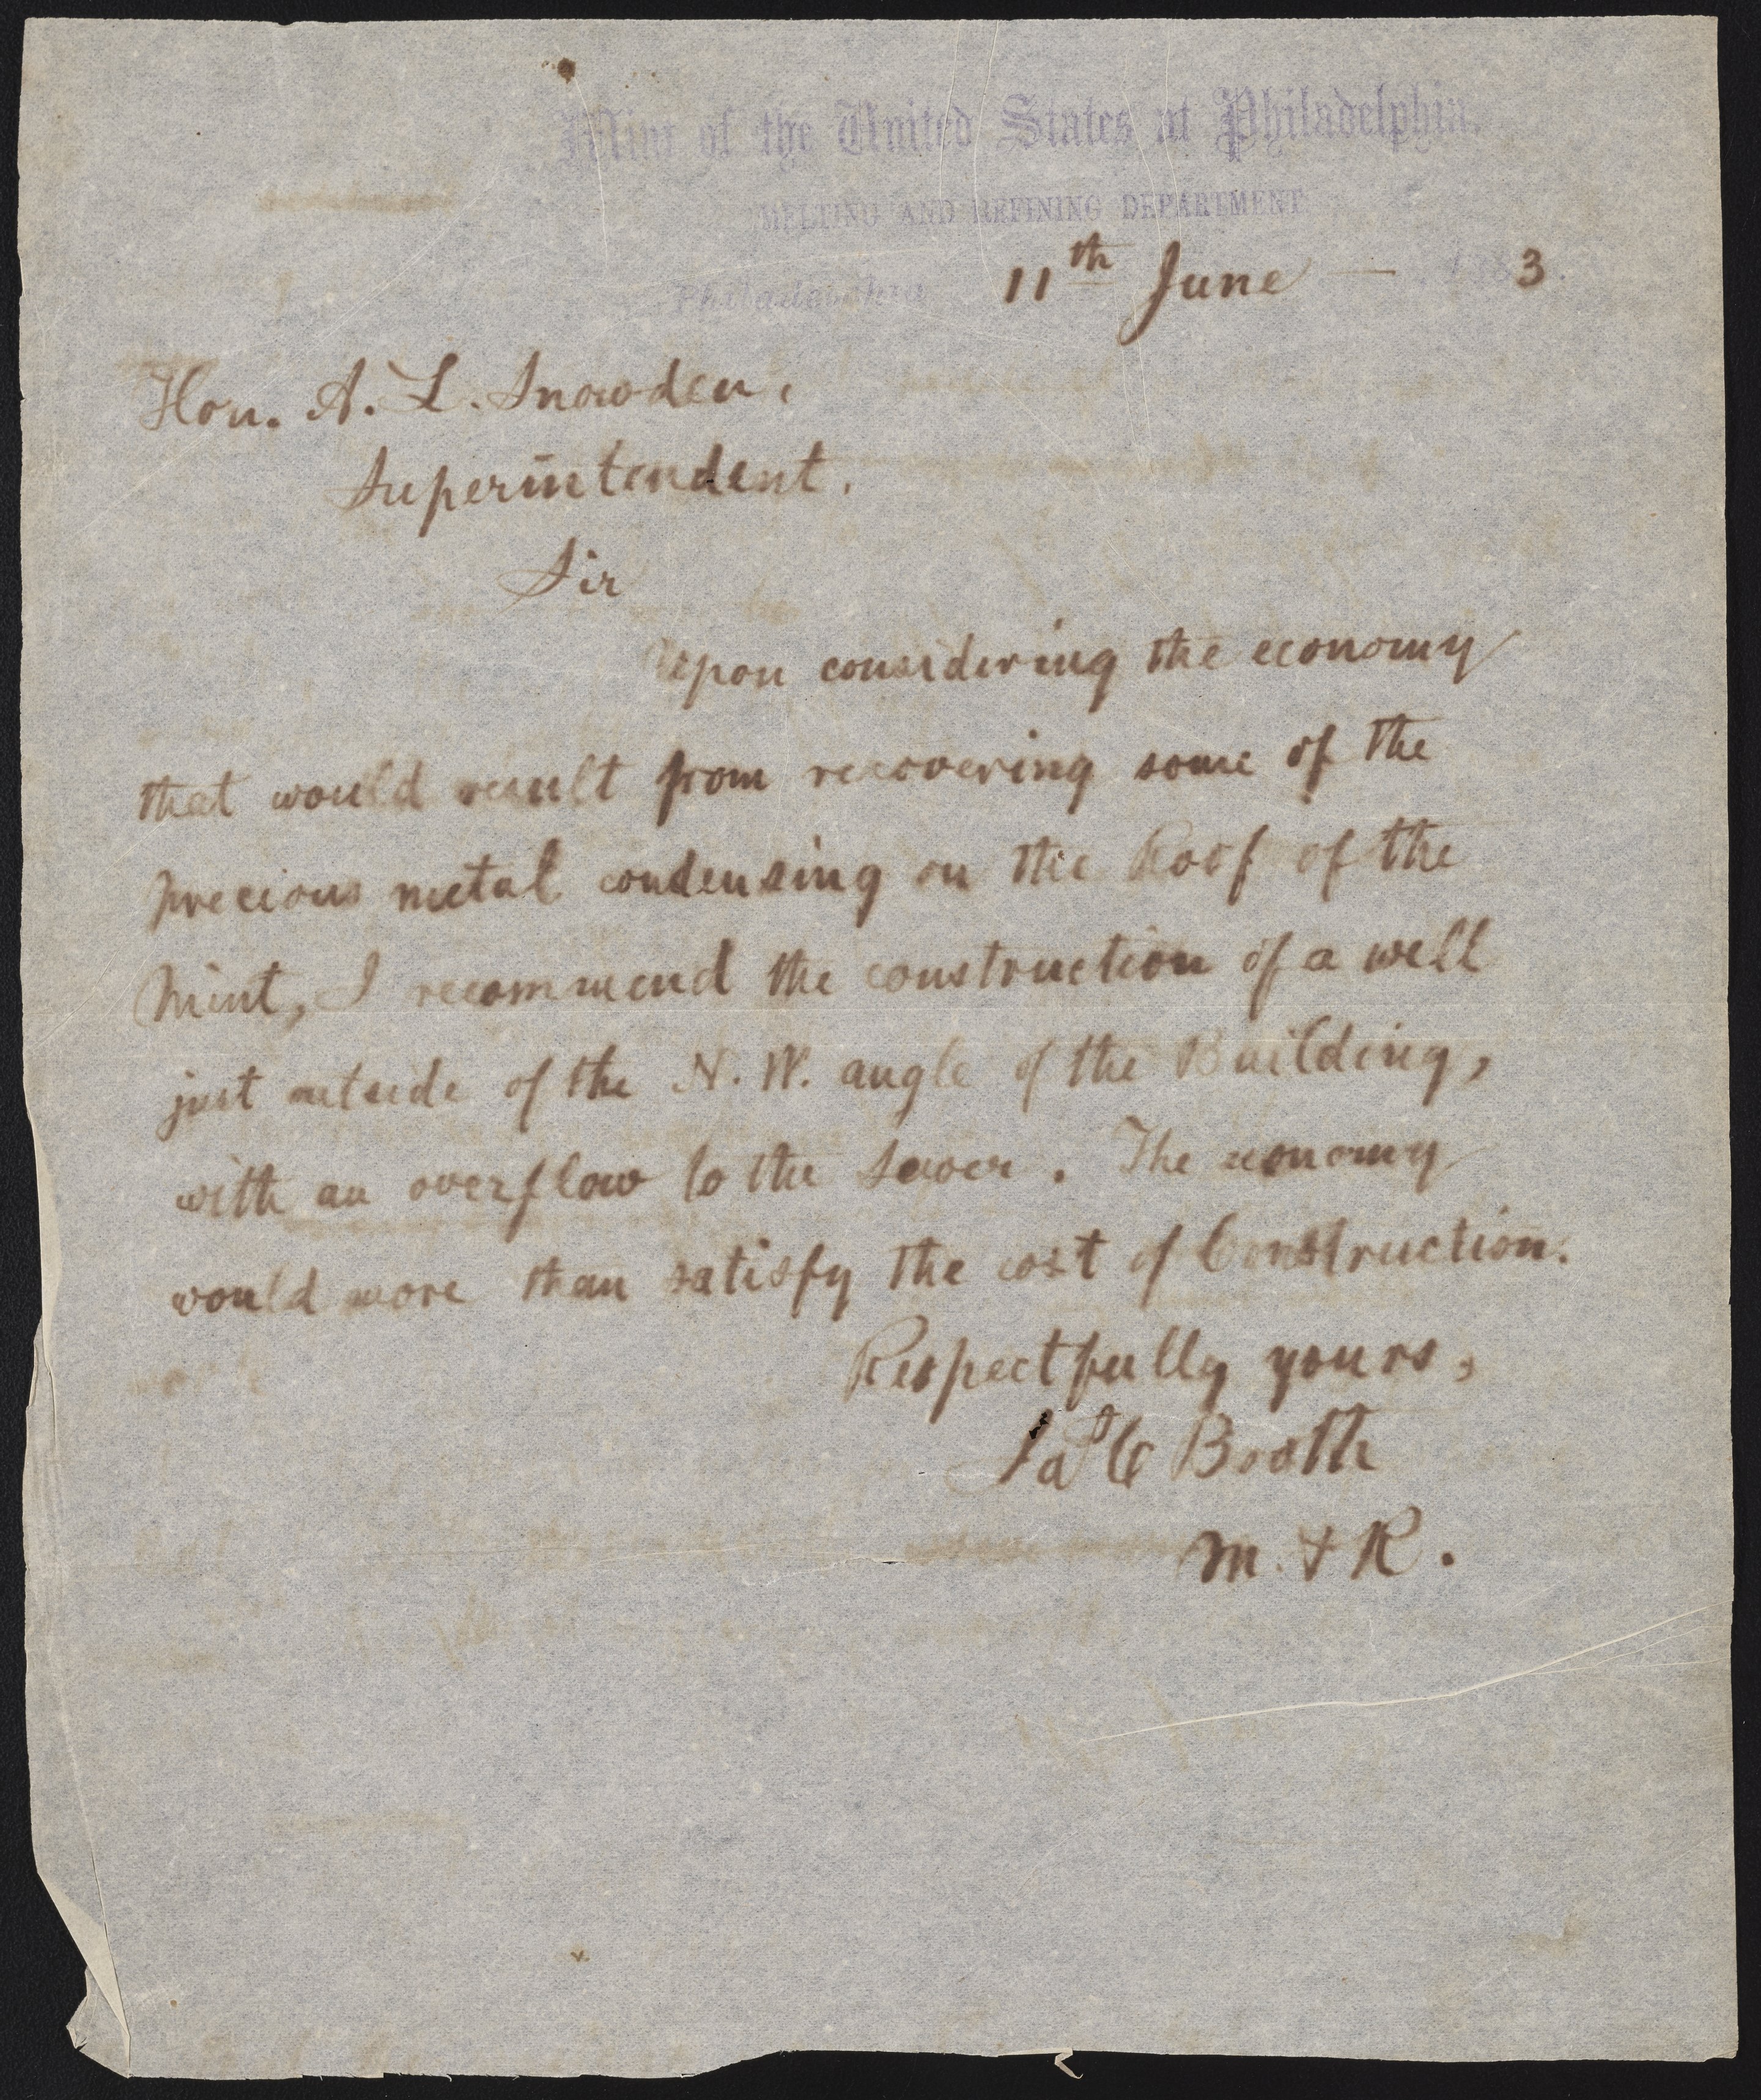 Mint of the United States at Philadelphia.
MELTING AND REFINING DEPARTMENT
Philadelphia 11th June — 1883.
Hon. A. L. Snowden,
Superintendent.
Sir
Upon considering the economy
that would result from recovering some of the
precious metal condensing on the Roof of the
Mint, I recommend the construction of a well
just outside of the N. W. angle of the Building,
with an overflow to the Sewer. The economy
would more than satisfy the cost of Construction.
Respectfully yours,
Jas C Booth
M. & R.